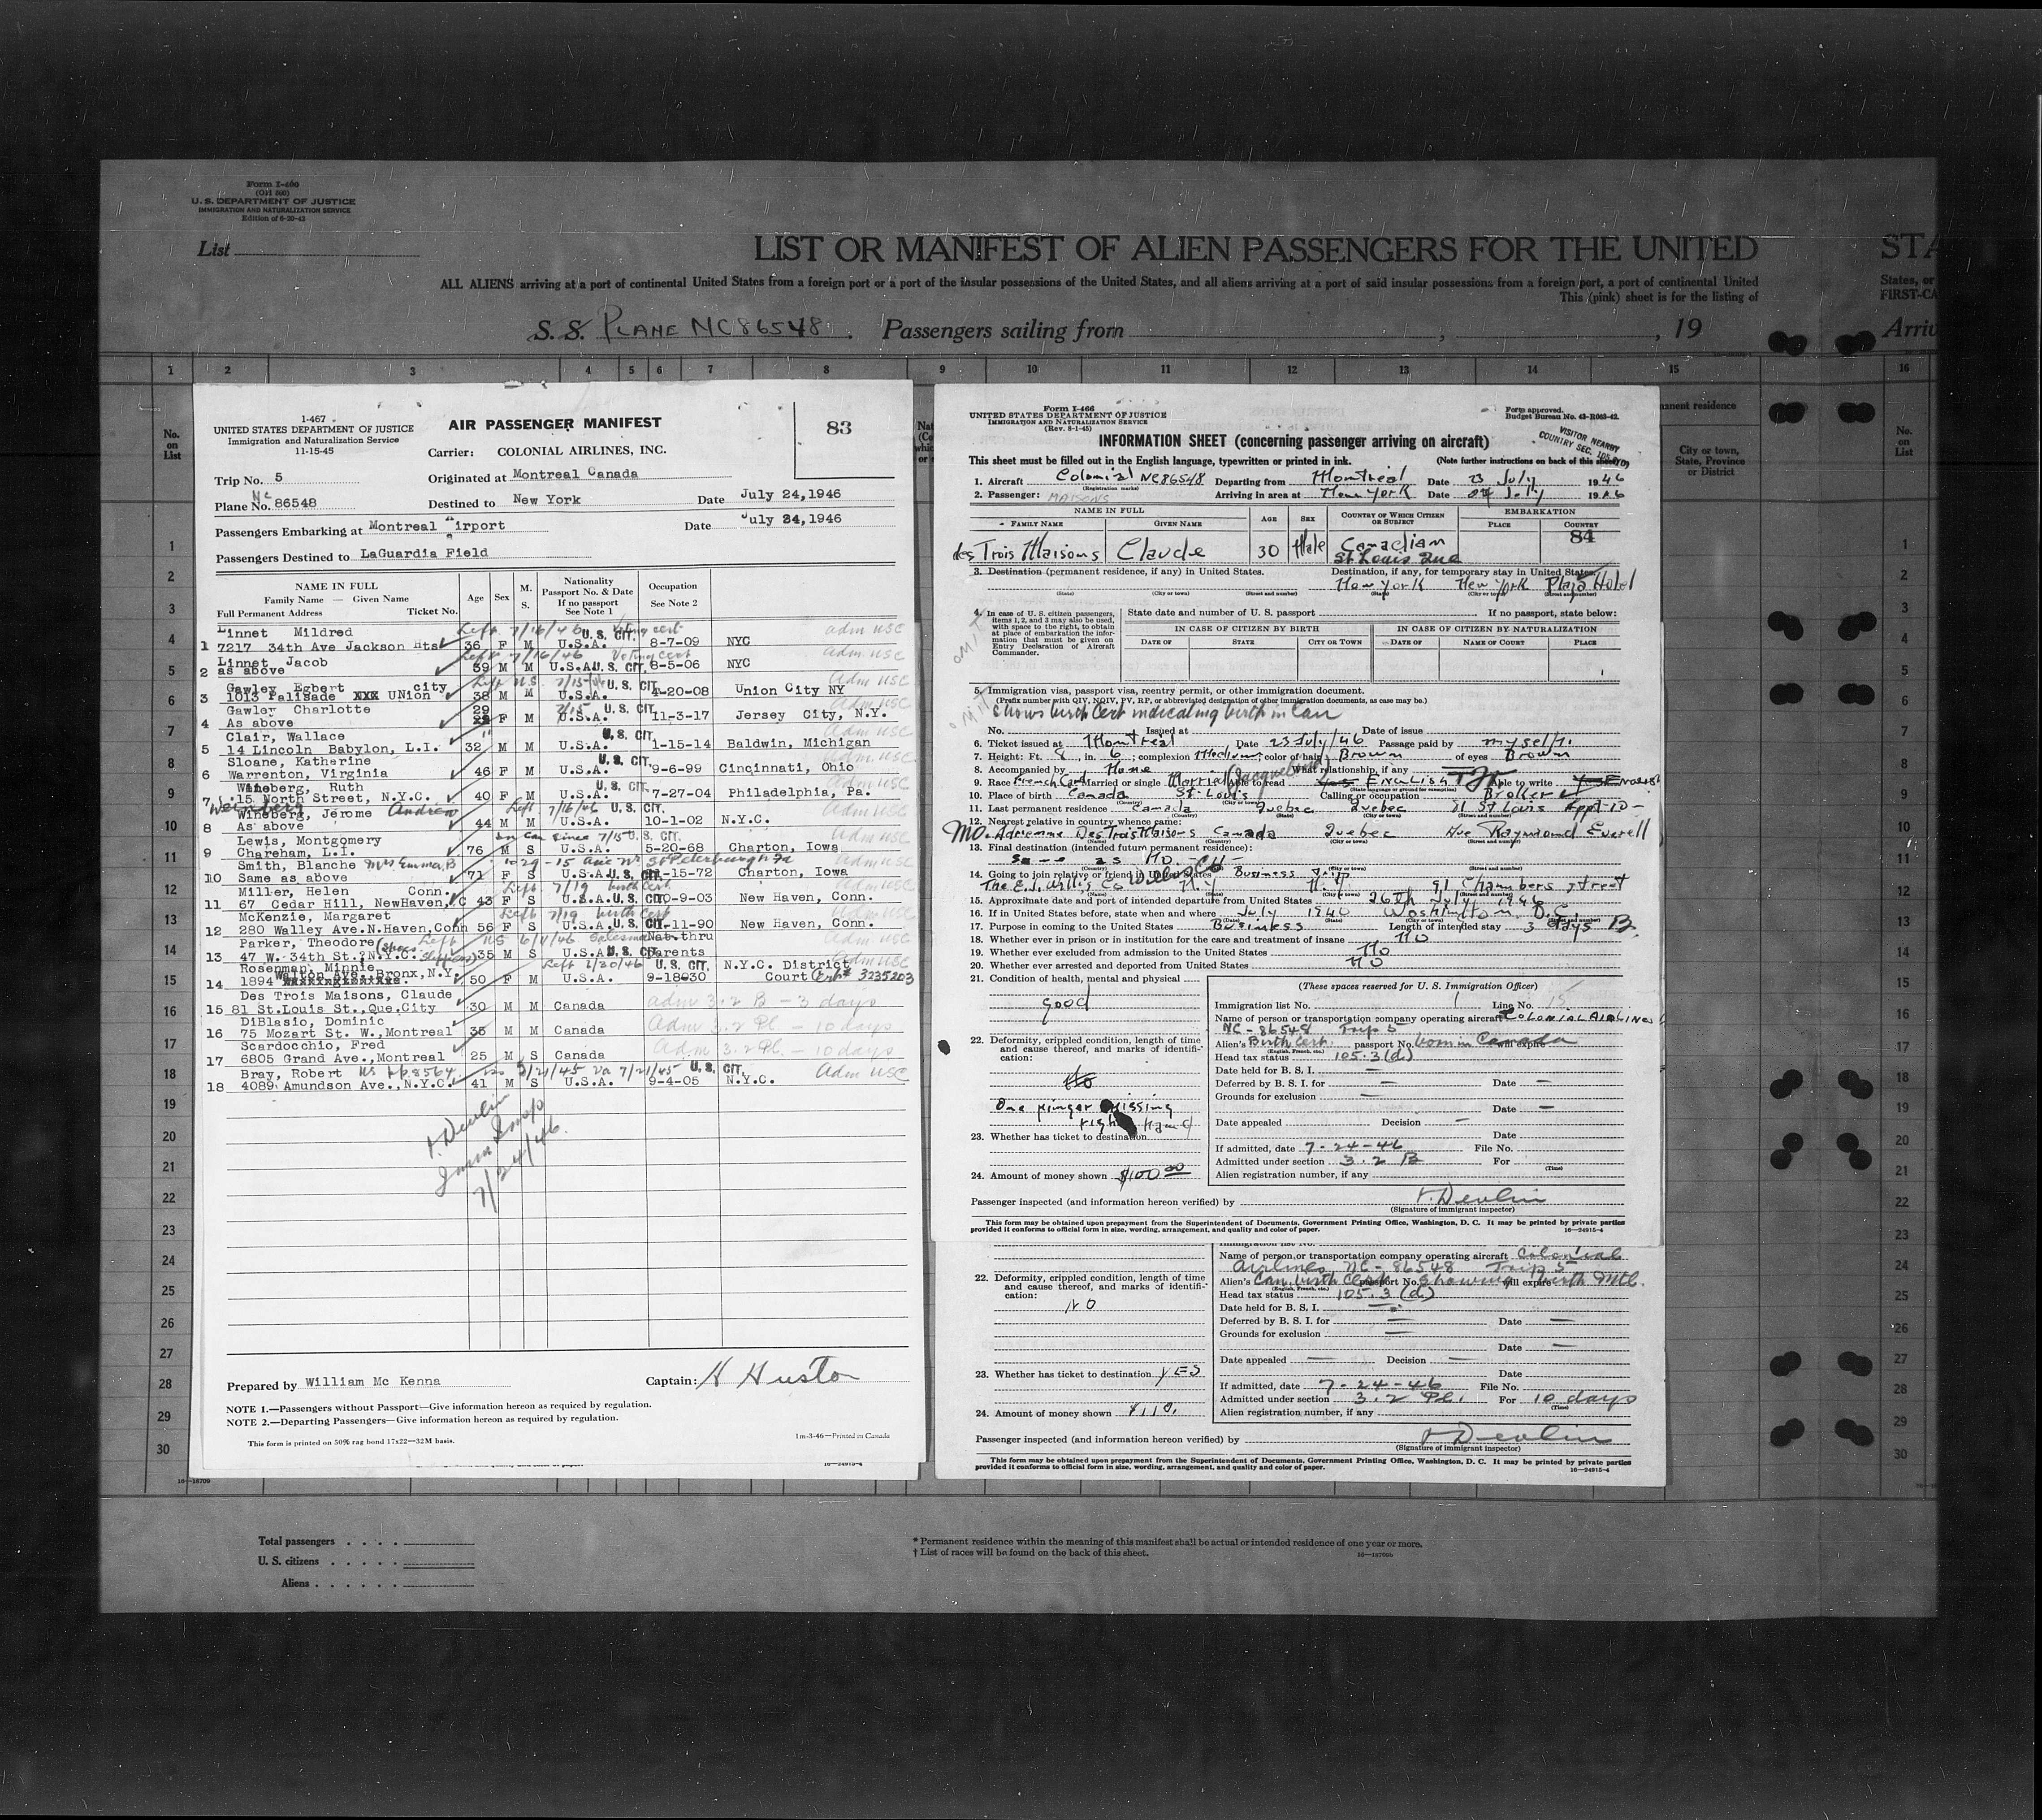 Form I-460
U. S. DEPARTMENT OF JUSTICE
IMMIGRATION AND NATURALIZATION SERVICE
List
LIST OR MANIFEST OF ALIEN PASSENGERS FOR THE UNITED STA
ALL ALIENS arriving at a port of continental United States from a foreign port or a port of the insular possessions of the United States, and all aliens arriving at a port of said insular possessions from a foreign port, a port of continental United States, or
This (pink) sheet is for the listing of FIRST-CA
S. S. PLANE NC86548. Passengers sailing from , , 19 Arriv
1 2 3 4 5 6 7 8 9 10 11 12 13 14 15 16
No. on List
1-467
UNITED STATES DEPARTMENT OF JUSTICE
Immigration and Naturalization Service
11-15-45
AIR PASSENGER MANIFEST
83
Carrier: COLONIAL AIRLINES, INC.
Trip No. 5 Originated at Montreal Canada
Plane No. NC 86548 Destined to New York Date July 24,1946
Passengers Embarking at Montreal Airport Date July 24,1946
Passengers Destined to LaGuardia Field
NAME IN FULL
Family Name — Given Name
Full Permanent Address Ticket No.
Age Sex M. S.
Nationality
Passport No. & Date
If no passport
See Note 1
Occupation
See Note 2
Linnet Mildred Left 7/16/46 U.S. CIT. Voting cert adm USC
1 7217 34th Ave Jackson Hts 36 F M U.S.A. 8-7-09 NYC
Linnet Jacob Left 7/16/46 Voting cert Adm. USC
2 as above 39 M M U.S.A. U.S. CIT. 8-5-06 NYC
Gawley Egbert city U.S. CIT. Adm USC
3 1013 Palisade XXX UNion 38 M M U.S.A. 4-20-08 Union City NY
Gawley Charlotte 29 7/15 U.S. CIT. Adm USC
4 As above F M U.S.A. 11-3-17 Jersey City, N.Y.
Clair, Wallace U.S. CIT. Adm USC
5 14 Lincoln Babylon, L.I. 32 M M U.S.A. 1-15-14 Baldwin, Michigan
Sloane, Katherine U.S. CIT. Adm USC
6 Warrenton, Virginia 46 F M U.S.A. 9-6-99 Cincinnati, Ohio
Wineberg, Ruth U.S. CIT. Adm USC
7 15 North Street, N.Y.C. 40 F M U.S.A. 7-27-04 Philadelphia, Pa.
Weinberg Andrew
Wineberg, Jerome Left 7/16/46 U.S. CIT. Adm USC
8 As above 44 M M U.S.A. 10-1-02 N.Y.C.
Lewis, Montgomery in Can since 7/5 U.S. CIT. Adm USC
9 Chareham, L.I. 76 M S U.S.A. 5-20-68 Charton, Iowa
Smith, Blanche Mrs Emma B 1029-15 Ave No St Petersburgh Fla Adm USC
10 Same as above 71 F S U.S.A. U.S. CIT. -15-72 Charton, Iowa
Miller, Helen Conn. Left 7/19 birth cert Adm USC
11 67 Cedar Hill, NewHaven, 43 F S U.S.A. U.S. CIT. 0-9-03 New Haven, Conn.
McKenzie, Margaret Left 7/19 birth cert Adm USC
12 280 Walley Ave.N.Haven,Conn 56 F S U.S.A. U.S. CIT. -11-90 New Haven, Conn.
Parker, Theodore Left US 6/11/46 Salesman Nat. thru Adm USC
13 47 W. 34th St.?N.Y.C. 35 M S U.S.A. U.S. CIT. Parents
Rosenman, Minnie Left U.S. CIT. N.Y.C. District Adm USC
14 1894 Walton Ave. Bronx, N.Y. 50 F M U.S.A. 9-18-30 Court Cert# 3235203
Des Trois Maisons, Claude adm 3.2 B - 3 days
15 81 St.Louis St.,Que.City 30 M M Canada
DiBlasio, Dominic Adm 3.2 Pl - 10 days
16 75 Mozart St. W.,Montreal 36 M M Canada
Scardocchio, Fred Adm 3.2 Pl. 10 days
17 6805 Grand Ave.,Montreal 25 M S Canada
Bray, Robert U.S. CIT. Adm USC
18 4089 Amundson Ave.,N.Y.C. 41 M S U.S.A. 9-4-05 N.Y.C.
Devlin
7/24/46.
Prepared by William Mc Kenna Captain: H Huston
NOTE 1.—Passengers without Passport—Give information hereon as required by regulation.
NOTE 2.—Departing Passengers—Give information hereon as required by regulation.
This form is printed on 50% rag bond 17x22—32M basis. 1m-3-46—Printed in Canada
Form I-466
UNITED STATES DEPARTMENT OF JUSTICE
IMMIGRATION AND NATURALIZATION SERVICE
(Rev. 8-1-45)
Form approved.
Budget Bureau No. 43-R063-42.
INFORMATION SHEET (concerning passenger arriving on aircraft)
This sheet must be filled out in the English language, typewritten or printed in ink. (Note further instructions on back of this sheet)
1. Aircraft Colonial NC86548 Departing from Montreal Date 23 July 1946
(Registration marks)
2. Passenger: MAISONS Arriving in area at New York Date July 1946
NAME IN FULL AGE SEX COUNTRY OF WHICH CITIZEN OR SUBJECT EMBARKATION
FAMILY NAME GIVEN NAME PLACE COUNTRY
84
des Trois Maisons Claude 30 Male Canadian
St Louis Que
3. Destination (permanent residence, if any) in United States. Destination, if any, for temporary stay in United States.
New York New York Plaza Hotel
(State) (City or town) (Street and number) (State) (City or town) (Street and number)
4. In case of U. S. citizen passengers, items 1, 2, and 3 may also be used, with space to the right, to obtain at place of embarkation the information that must be given on Entry Declaration of Aircraft Commander.
State date and number of U. S. passport If no passport, state below:
IN CASE OF CITIZEN BY BIRTH IN CASE OF CITIZEN BY NATURALIZATION
DATE OF STATE CITY OR TOWN DATE OF NAME OF COURT PLACE
5. Immigration visa, passport visa, reentry permit, or other immigration document.
(Prefix number with QIV, NQIV, PV, RP, or abbreviated designation of other immigration documents, as case may be.)
Shows birth Cert indicating birth in Can
No. Issued at Date of issue
6. Ticket issued at Montreal Date 23 July/46 Passage paid by myself.
7. Height: Ft. , in. 6; complexion Medium; color of hair Brown of eyes Brown
8. Accompanied by None What relationship, if any
9. Race French Can Married or single Married Able to read English Able to write
10. Place of birth Canada St-Louis Calling or occupation Broker
11. Last permanent residence Canada Quebec Quebec 81 St Louis Appt 10-
12. Nearest relative in country whence came:
Mo. Adrienne Des Trois Maisons Canada Quebec Ave Raymond Everell
13. Final destination (intended future permanent residence):
same as No.
14. Going to join relative or friend in United States Business trip
The E.J. Willis Co N.Y N.Y. 91 Chambers street
15. Approximate date and port of intended departure from United States 26th July 1946
16. If in United States before, state when and where July 1940 Washington D.C.
17. Purpose in coming to the United States Business Length of intended stay 3 days B
18. Whether ever in prison or in institution for the care and treatment of insane No
19. Whether ever excluded from admission to the United States No
20. Whether ever arrested and deported from United States No
21. Condition of health, mental and physical
good
22. Deformity, crippled condition, length of time and cause thereof, and marks of identification:
No
One finger missing
right Hand
23. Whether has ticket to destination
24. Amount of money shown $100.00
(These spaces reserved for U. S. Immigration Officer)
Immigration list No. 1 Line No. 15
Name of person or transportation company operating aircraft COLONIAL AIRLINES
NC-86548 Trip 5
Alien's Birth Cert. passport No. born in Canada will expire
Head tax status 105.3(d)
Date held for B. S. I.
Deferred by B. S. I. for Date
Grounds for exclusion
Date
Date appealed Decision
Date
If admitted, date 7-24-46 File No.
Admitted under section 3.2 B For
(Time)
Alien registration number, if any
Passenger inspected (and information hereon verified) by Devlin
(Signature of immigrant inspector)
This form may be obtained upon prepayment from the Superintendent of Documents, Government Printing Office, Washington, D. C. It may be printed by private parties
provided it conforms to official form in size, wording, arrangement, and quality and color of paper. 16—24915-4
Name of person or transportation company operating aircraft Colonial
Airlines NC-86548 Trip 5
22. Deformity, crippled condition, length of time and cause thereof, and marks of identification:
NO
Alien's Can. birth Cert passport No. showing will expire birth Mtl.
Head tax status 105.3 (d)
Date held for B. S. I.
Deferred by B. S. I. for Date
Grounds for exclusion
Date
Date appealed Decision
23. Whether has ticket to destination YES
Date
If admitted, date 7-24-46 File No.
Admitted under section 3.2 Pl. For 10 days
(Time)
24. Amount of money shown $110.
Alien registration number, if any
Passenger inspected (and information hereon verified) by Devlin
(Signature of immigrant inspector)
This form may be obtained upon prepayment from the Superintendent of Documents, Government Printing Office, Washington, D. C. It may be printed by private parties
provided it conforms to official form in size, wording, arrangement, and quality and color of paper. 16—24915-4
Total passengers
U. S. citizens
Aliens
* Permanent residence within the meaning of this manifest shall be actual or intended residence of one year or more.
† List of races will be found on the back of this sheet.